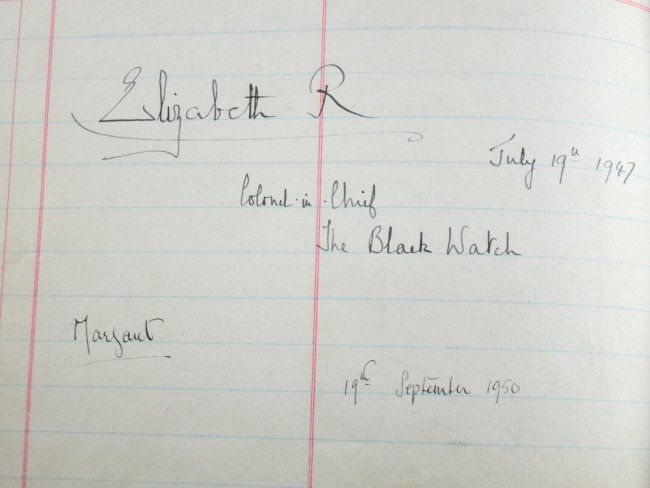 Elizabeth R
July 19th 1947
Colonel-in-Chief
The Black Watch
Margaret
19th September 1950